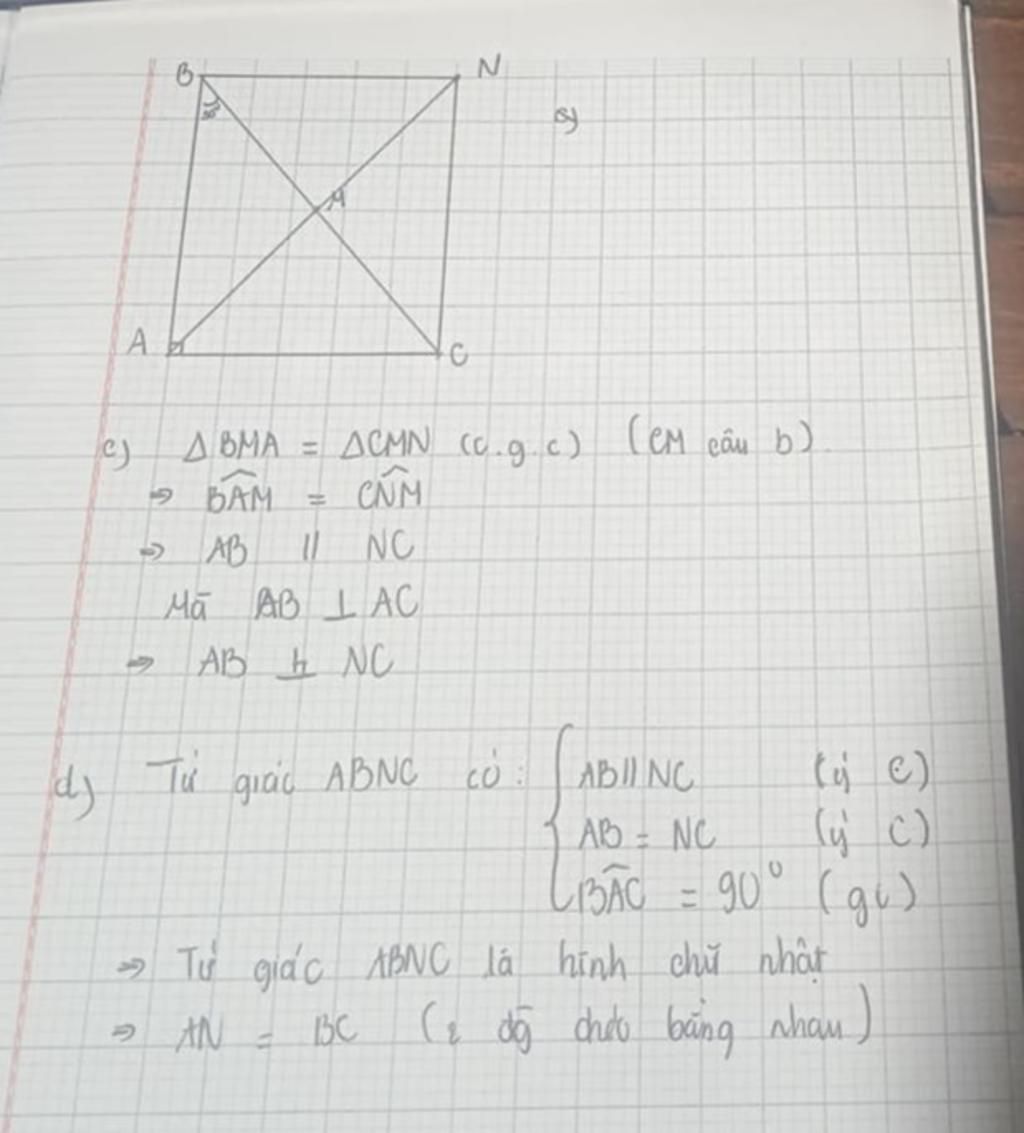 B
N
a)
M
A
C
c) Δ BMA = ΔCMN (c.g.c) (CM câu b)
⇒ BÂM = CN̂M
⇒ AB // NC
Mà AB ⊥ AC
⇒ AB ⊥ NC
d) Tứ giác ABNC có: { AB // NC (ý c)
AB = NC (ý c)
BÂC = 90° (gt)
⇒ Tứ giác ABNC là hình chữ nhật
⇒ AN = BC (2 đg chéo bằng nhau)